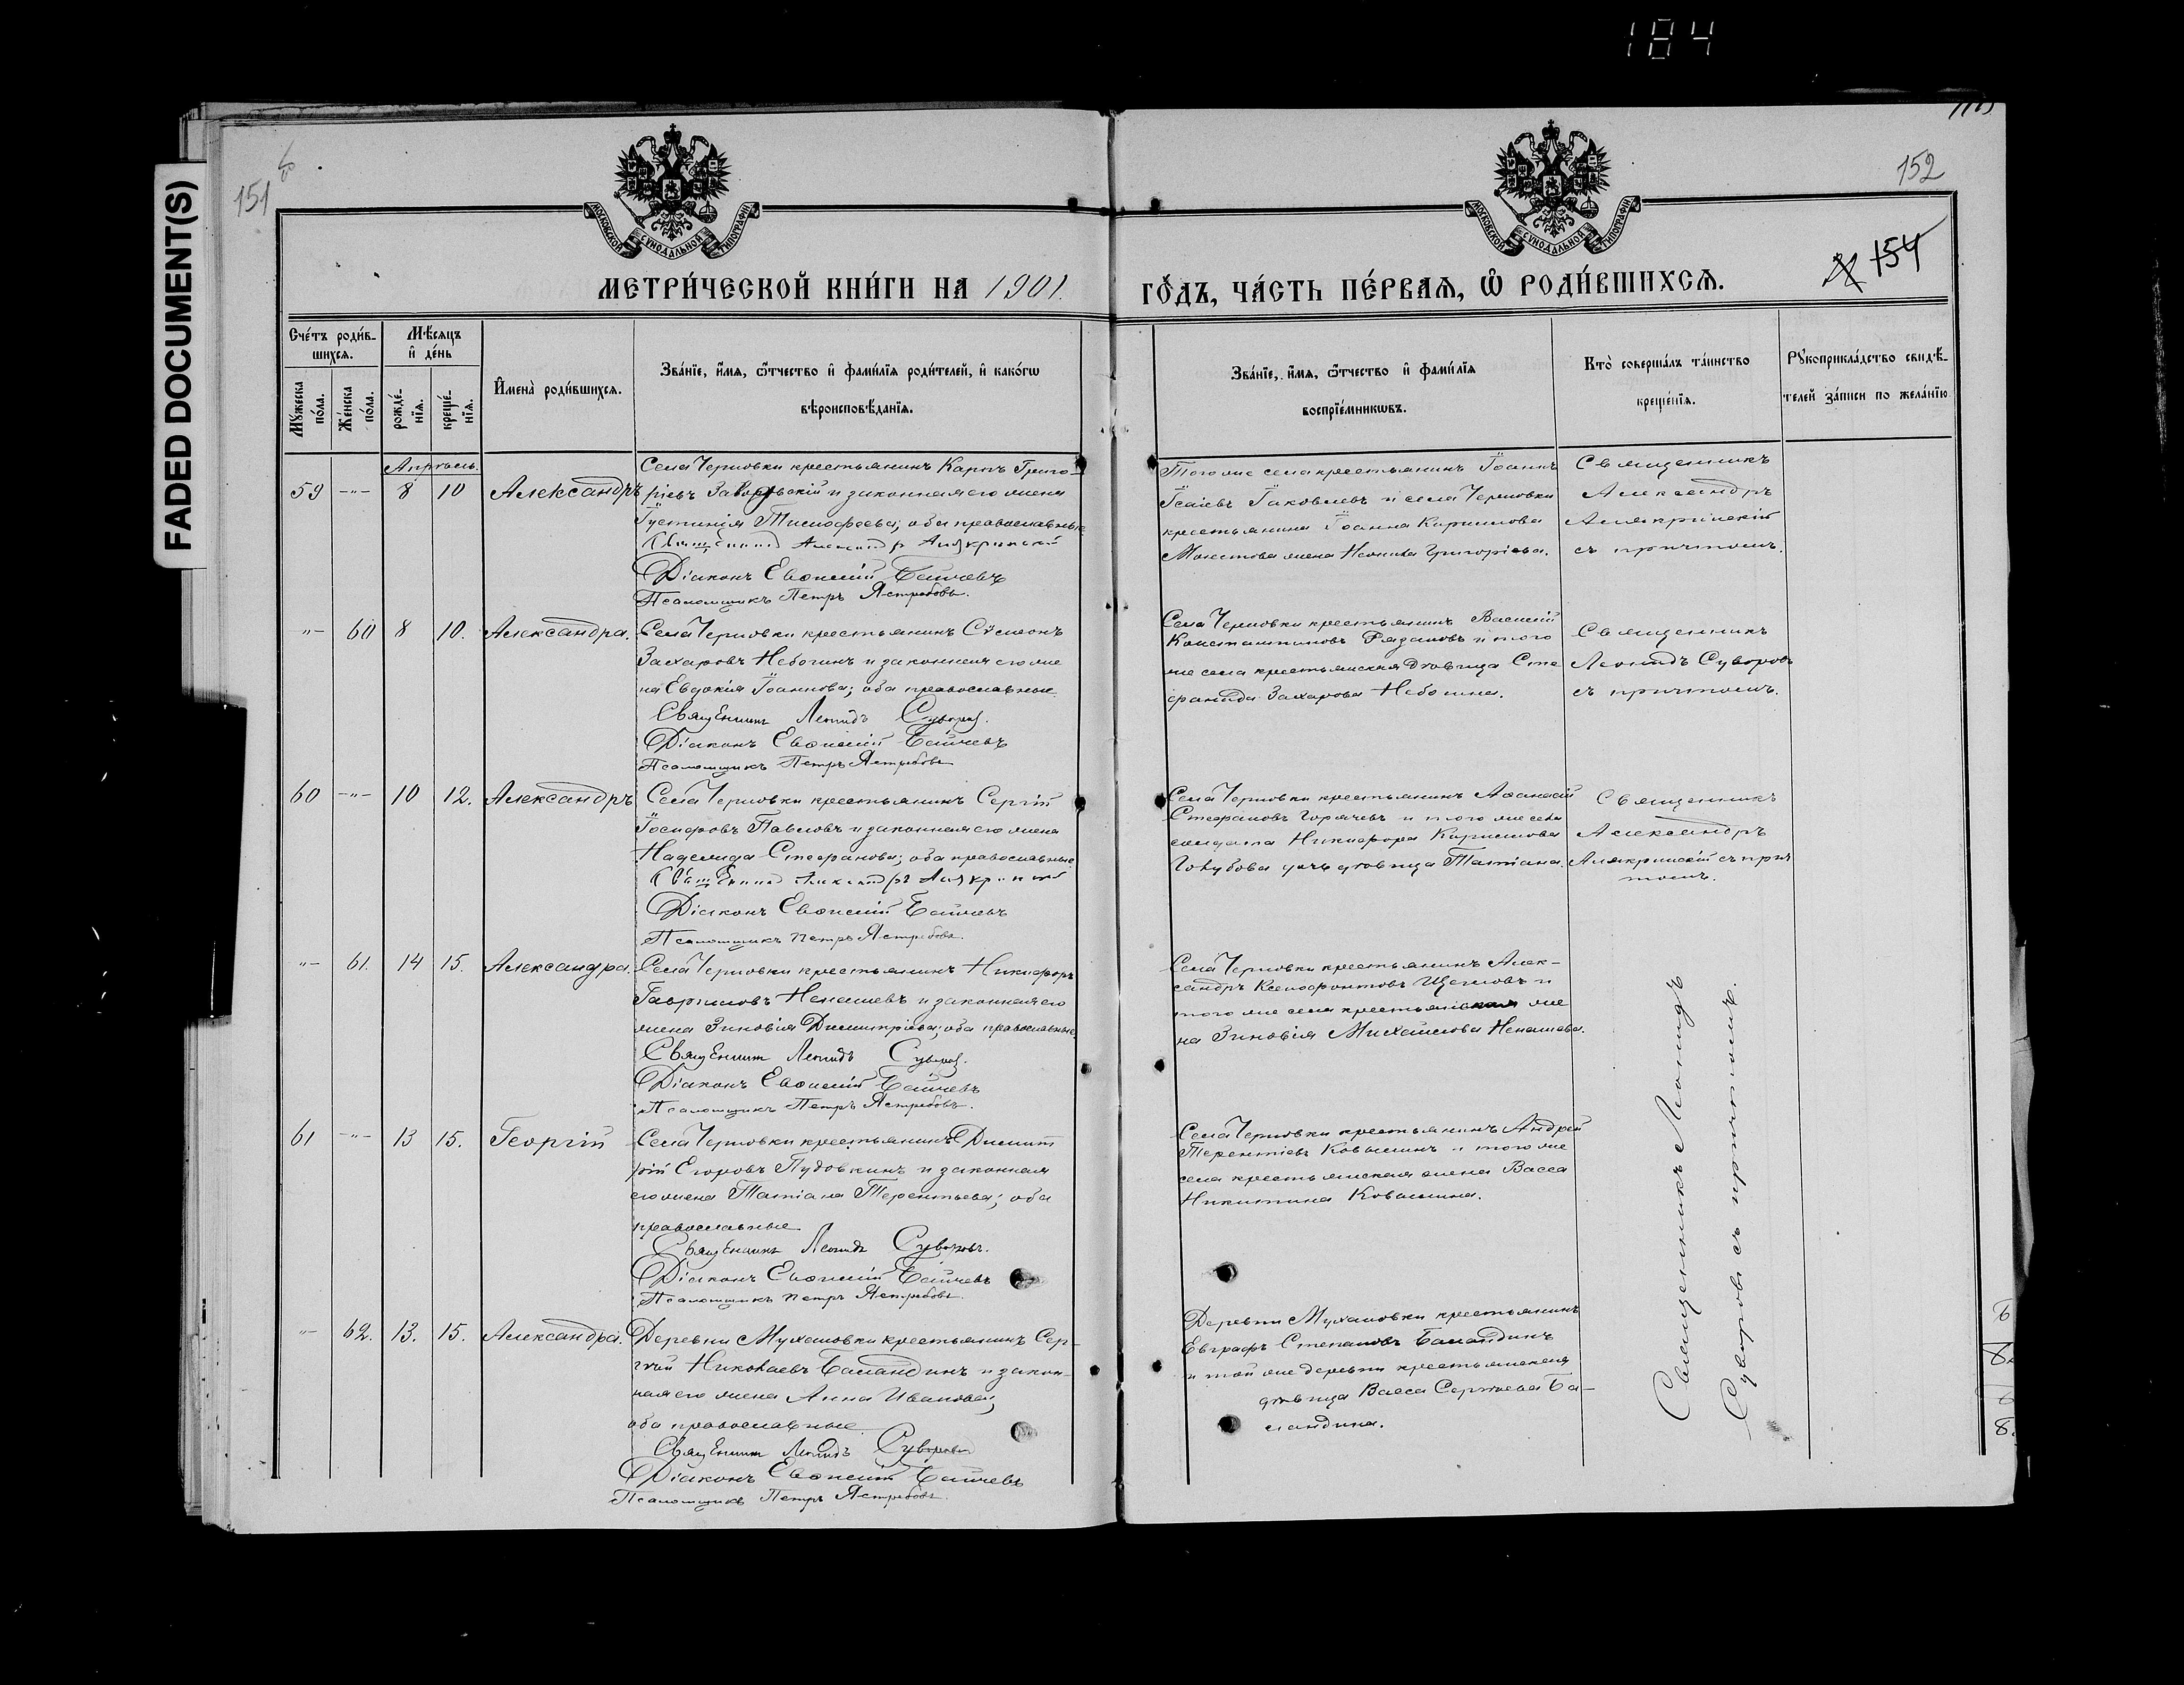 184
FADED DOCUMENT(S)
151
152
154
МОСКОВСКОЙ СѴНОДАЛЬНОЙ ТИПОГРАФІИ
МОСКОВСКОЙ СѴНОДАЛЬНОЙ ТИПОГРАФІИ
МЕТРИ́ЧЕСКОЙ КНИ́ГИ НА 1901. ГО́ДЪ, ЧА́СТЬ ПЕ́РВАѦ, Ѡ҆ РОДИ́ВШИХСѦ.
Сче́тъ роди́в-
шихся.
Мꙋ́жеска по́ла.
Же́нска по́ла.
Мѣ́сяцъ
и҆ де́нь
рожде́-нїя.
креще́-нїя.
И҆мена̀ роди́вшихся.
Зва́нїе, и҆́мя, ѻ҆́тчество и҆ фами́лїя роди́телей, и҆ како́гѡ
вѣроисповѣ́данїя.
Зва́нїе, и҆́мя, ѻ҆́тчество и҆ фами́лїя
воспрїе́мникѡвъ.
Кто̀ соверша́лъ та́инство
креще́нїя.
Рꙋкоприкла́дство свидѣ́-
телей за́писи по жела́нїю
Апрѣль.
59 -"- 8 10 Александръ
Села Черновки крестьянинъ Карпъ Григо-
ріевъ и законная его жена
Іустинія Тимофеева; оба православные
Священникъ Александръ Алякринскій
Діаконъ Евѳимій
Псаломщикъ Петръ Ястребовъ.
Того же села крестьянинъ Іоаннъ
Ісаіевъ Іаковлевъ и села Черновки
крестьянина Іоанна Кириллова
жена Григоріева.
Священникъ
Александръ
Алякринскій
съ причтомъ.
"- 60 8 10. Александра.
Села Черновки крестьянинъ Сѵмеонъ
Захаровъ Небогинъ и законная его же
на Евдокія Іоаннова; оба православные
Священникъ Леонидъ Суворовъ.
Діаконъ Евѳимій
Псаломщикъ Петръ Ястребовъ
Села Черновки крестьянинъ Василій
Константиновъ Рязановъ и того
же села крестьянская дѣвица Сте
фанида Захарова Небогина.
Священникъ
Леонидъ Суворовъ
съ причтомъ.
60 -"- 10 12. Александръ
Села Черновки крестьянинъ Сергій
Іосифовъ Павловъ и законная его жена
Надежда Стефанова; оба православные
Священникъ Александръ Алякринскій
Діаконъ Евѳимій
Псаломщикъ Петръ Ястребовъ.
Села Черновки крестьянинъ Аѳанасій
Стефановъ Горячевъ и того же села
солдата Никифора Кириллова
Голубова дочь дѣвица Татіана.
Священникъ
Александръ
Алякринскій съ прич
томъ.
"- 61. 14 15. Александра.
Села Черновки крестьянинъ Никифоръ
Гавриловъ Ненашевъ и законная его
жена Зиновія Димитріева; оба православные
Священникъ Леонидъ Суворовъ.
Діаконъ Евѳимій
Псаломщикъ Петръ Ястребовъ.
Села Черновки крестьянинъ Алек-
сандръ Ксенофонтовъ Щегловъ и
того же села крестьянская же
на Зиновія Михайлова Ненашева.
61 -"- 13 15. Георгій
Села Черновки крестьянинъ Димит
рій Егоровъ Пудовкинъ и законная
его жена Татіана Терентьева; оба
православные
Священникъ Леонидъ Суворовъ.
Діаконъ Евѳимій
Псаломщикъ Петръ Ястребовъ.
Села Черновки крестьянинъ Андрей
Терентіевъ Ковылинъ и того же
села крестьянская жена Васса
Никитина Ковылина.
"- 62. 13. 15. Александра.
Деревни Мухановки крестьянинъ Сер-
гѣй Николаевъ Баландинъ и закон-
ная его жена Анна Иванова;
оба православные
Священникъ Леонидъ Суворовъ
Діаконъ Евѳимій
Псаломщикъ Петръ Ястребовъ.
Деревни Мухановки крестьянинъ
Евграфъ Степановъ Баландинъ
и той же деревни крестьянская
дѣвица Васса Сергѣева Ба-
ландина.
Священникъ Леонидъ
Суворовъ съ причтомъ.